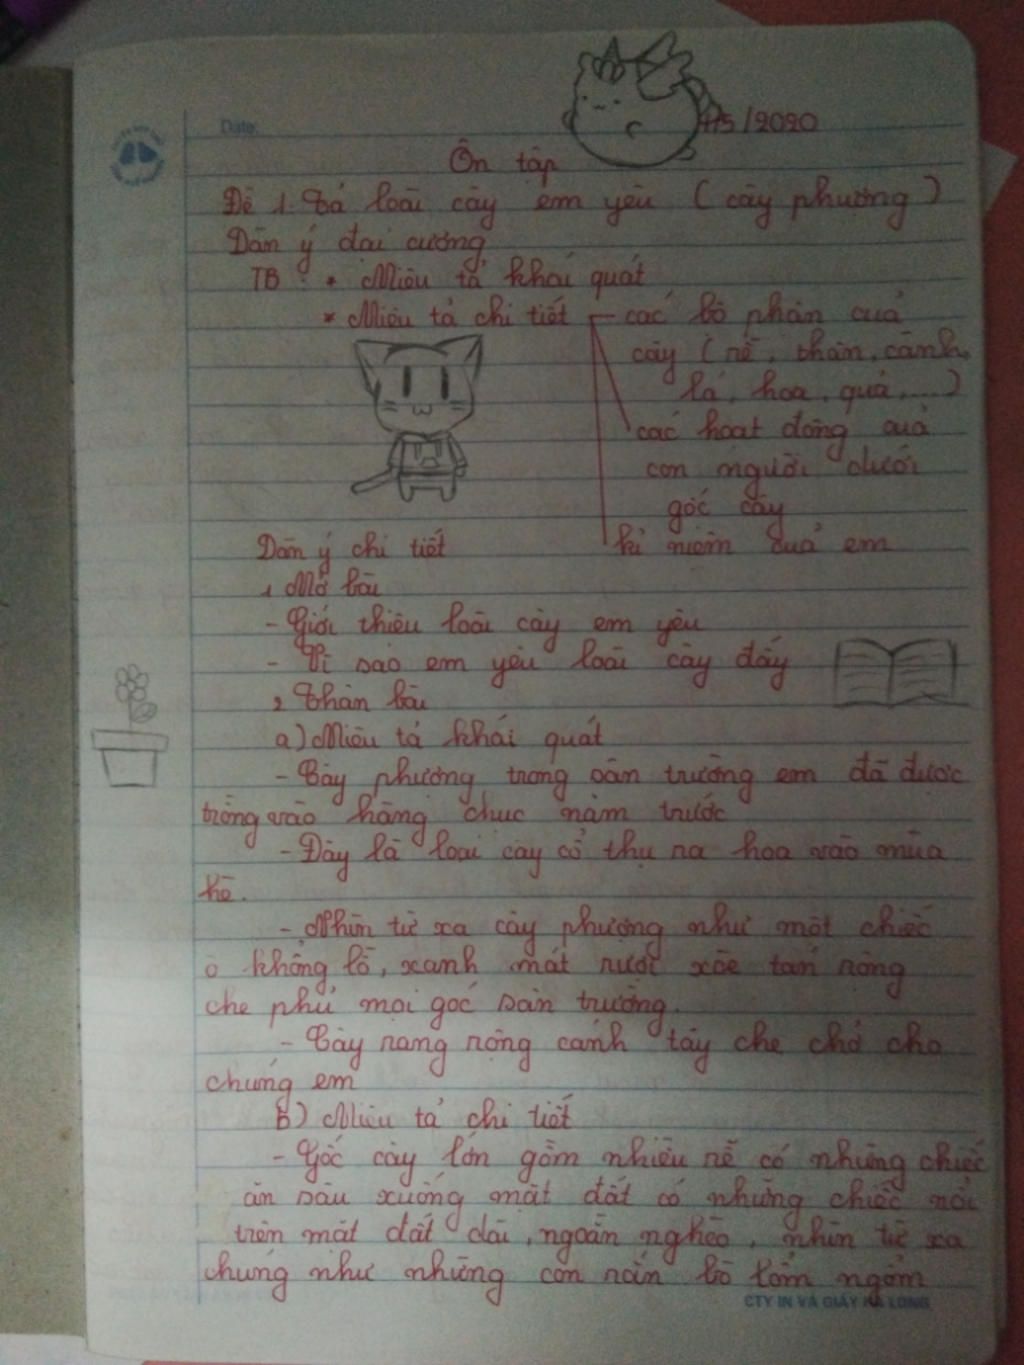 Date: 4/5/2020
Ôn tập
Đề 1. Tả loài cây em yêu (cây phượng)
Dàn ý đại cương
TB : * Miêu tả khái quát
* Miêu tả chi tiết - các bộ phận của
cây (rễ, thân, cành,
lá, hoa, quả,....)
các hoạt động của
con người dưới
gốc cây
kỉ niệm của em
Dàn ý chi tiết
1 Mở bài
- Giới thiệu loài cây em yêu
- Vì sao em yêu loài cây đấy
2 Thân bài
a) Miêu tả khái quát
- Cây phượng trong sân trường em đã được
trồng vào hàng chục năm trước
- Đây là loại cây cổ thụ ra hoa vào mùa
hè.
- Nhìn từ xa cây phượng như một chiếc
ô khổng lồ, xanh mát rượi xòe tán rộng
che phủ mọi góc sân trường.
- Cây rang rộng cánh tay che chở cho
chúng em
b) Miêu tả chi tiết
- Gốc cây lớn gồm nhiều rễ có những chiếc
ăn sâu xuống mặt đất có những chiếc nổi
trên mặt đất dài, ngoằn nghèo, nhìn từ xa
chúng như những con rắn bò lổm ngổm
CTY IN VÀ GIẤY HẠ LONG